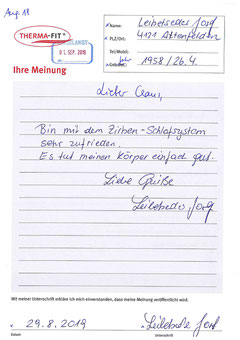 Aug. 18
THERMA-FIT®
EINGELANGT
01. SEP. 2019
Name: Leibetseder Jörg
PLZ/Ort: 4121 Altenfelden
Tel/Mobil:
Geboren: 1958/26.4.
Ihre Meinung
Lieber Claus,
Bin mit dem Zirben-Schlafsystem
sehr zufrieden.
Es tut meinen Körper einfach gut.
Liebe Grüße
Leibetseder Jörg
Mit meiner Unterschrift erkläre ich mich einverstanden, dass meine Meinung veröffentlicht wird.
29.8.2019
Datum
Unterschrift